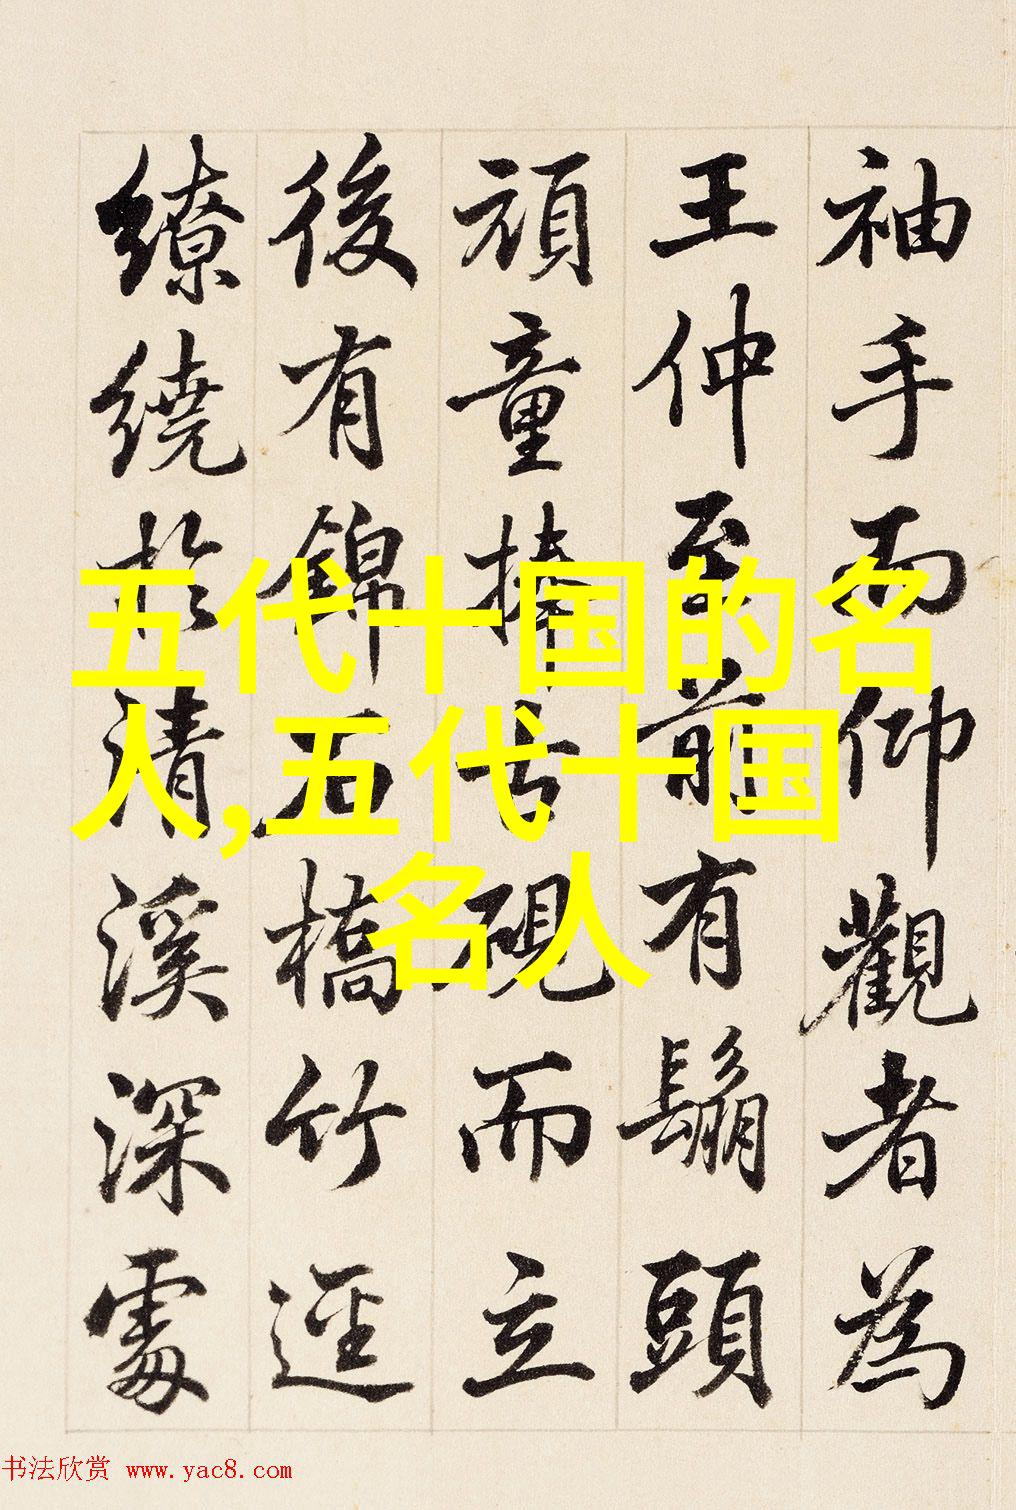 袖手而仰觀者為
王仲至前有鬅頭
頑童捧古硯而立
後有錦石橋竹逕
繚繞於清溪深處
五代十国的名
人,五代十国
名人
书法欣赏 www.yac8.com